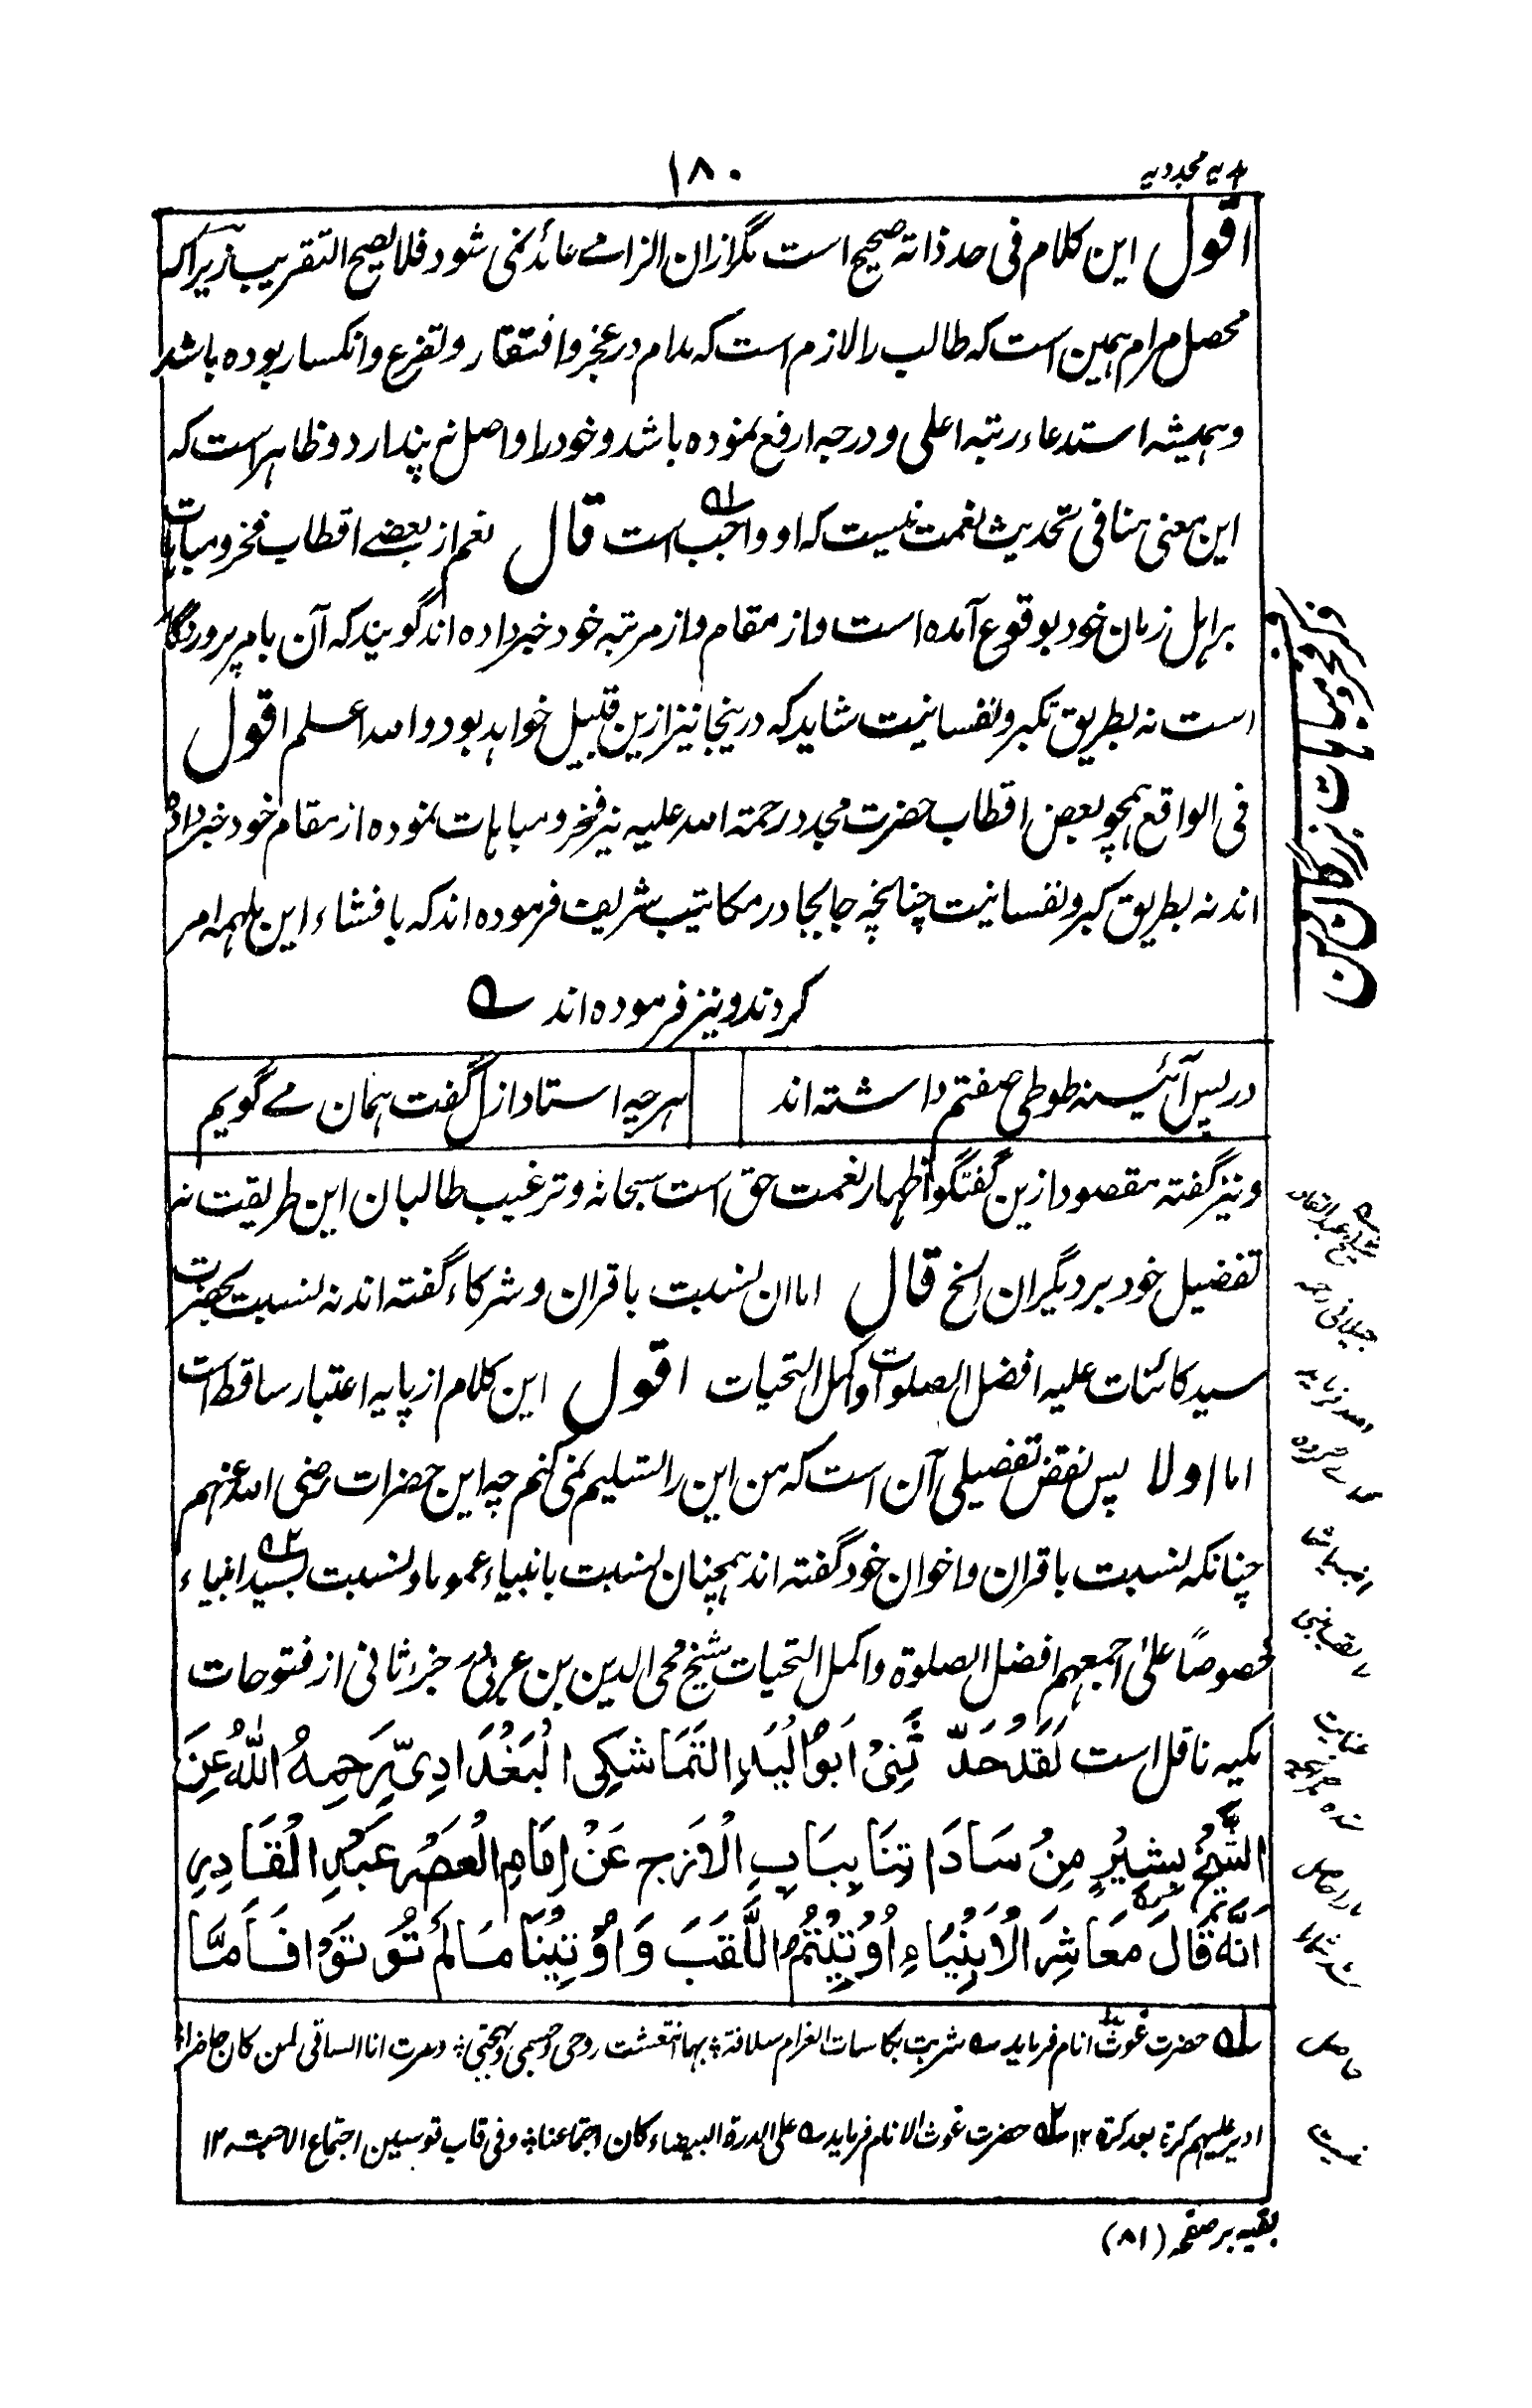 ۱۸۰
ہدیہ مجددیہ
اقول این کلام فی حد ذاته صحیح است مگر ازان الزامے عائد نمی شود فلا یصح التقریب زیرا که
محصل مرام ہمین است که طالب را لازم است که مدام در عجز و افتقار و تضرع و انکسار بوده باشد
و ہمیشه استدعاء رتبه اعلی و درجه ارفع نموده باشد و خود را واصل نه پندارد و ظاہر است که
این معنی منافی تحدیث نعمت نیست که او واجب ۱ است قال نعم از بعضے اقطاب فخر و مباہات
بر اہل زمان خود بوقوع آمده است و از مقام و از مرتبه خود خبر داده اند گویند که آن بامر پروردگار
است نه بطریق تکبر و نفسانیت شاید که درینجا نیز ازین قبیل خواہد بود والله اعلم اقول
فی الواقع ہمچو بعض اقطاب حضرت مجدد رحمة الله علیه نیز فخر و مباہات نموده از مقام خود خبر داده
اند نه بطریق کبر و نفسانیت چنانچه جابجا در مکاتیب شریف فرموده اند که بافشاء این ملهمه امر
کردند و نیز فرموده اند ؎
در پس آئینه طوطی صفتم داشته اند
ہرچه استاد ازل گفت ہمان مے گویم
و نیز گفته مقصود ازین گفتگو اظہار نعمت حق است سبحانه و ترغیب طالبان این طریقت نه
تفضیل خود بر دیگران الخ قال اما ان نسبت باقران و شرکاء گفته اند نه نسبت بحضرت
سید کائنات علیه افضل الصلوات و اکمل التحیات اقول این کلام از پایه اعتبار ساقط است
اما اولا پس نقض تفصیلی آن است که من این را تسلیم نمی کنم چه این حضرات رضی الله عنہم
چنانکه نسبت باقران و اخوان خود گفته اند ہمچنان نسبت بانبیاء عموما و نسبت بسید ۲ انبیاء
خصوصًا علیٰ اجمعہم افضل الصلوة و اکمل التحیات شیخ محی الدین بن عربی در جزء ثانی از فتوحات
مکیه ناقل است لَقَدْ حَدَّ ثَنِیْ اَبُو الْبَدْرِ التَّمَاشَکِی الْبَغْدَادِیّ رَحِمِهُ اللّٰهُ عَنِ
الشَّیْخِ بِشِیْرٍ مِنْ سَادَاتِنَا بِبَابِ الْاَزَجِ عَنْ اِمَامِ الْعَصْرِ عَبْدِ الْقَادِرِ
اَنَّهٗ قَالَ مَعَاشِرَ الْاَنْبِیَاءِ اُوْتِیْتُمُ اللَّقَبَ وَ اُوْتِیْنَا مَا لَمْ تُوْتَوْا فَاَمَّا
۱ حضرت غوث انام فرماید ؎ شربت بکاسات الغرام سلافة بہا انتعشت روحی و جسمی و مہجتی
ادیر علیہم کرة بعد کرة ۱۲ ۲ حضرت غوث الانام فرماید ؎ علی الدرة البیضاء کان اجتماعنا و فی قاب قوسین اجتماع الاحبة ۱۲
بقیه بر صفحه (۸۱)